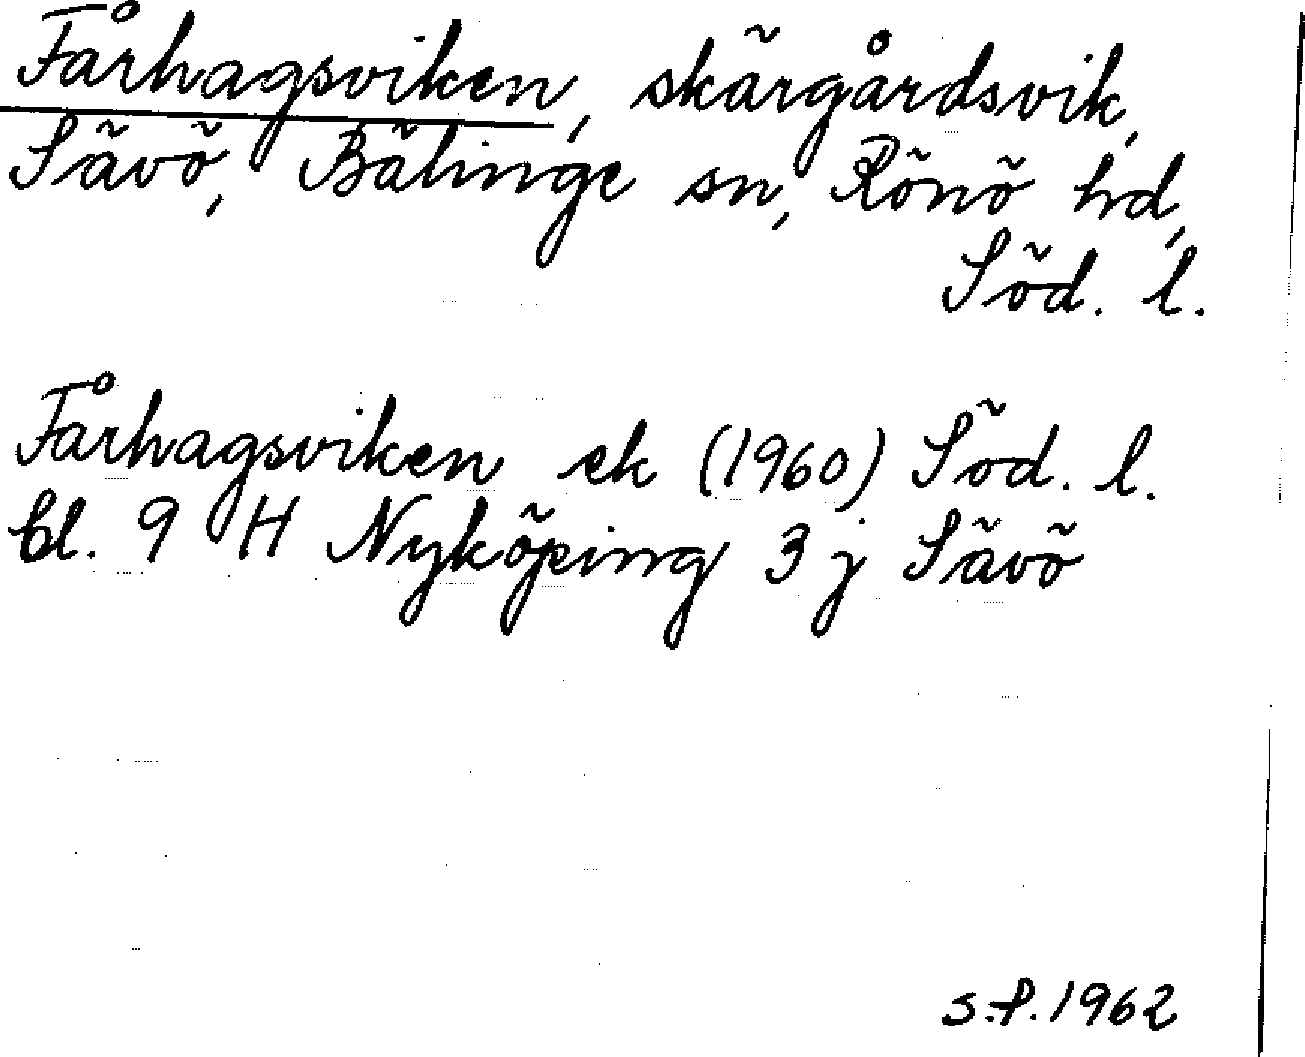 Fårhagsviken, skärgårdsvik,
Sävö, Bälinge sn, Rönö hd,
Söd. l.
Fårhagsviken ek (1960) Söd. l.
bl. 9 H Nyköping 3 j Sävö
S.P. 1962